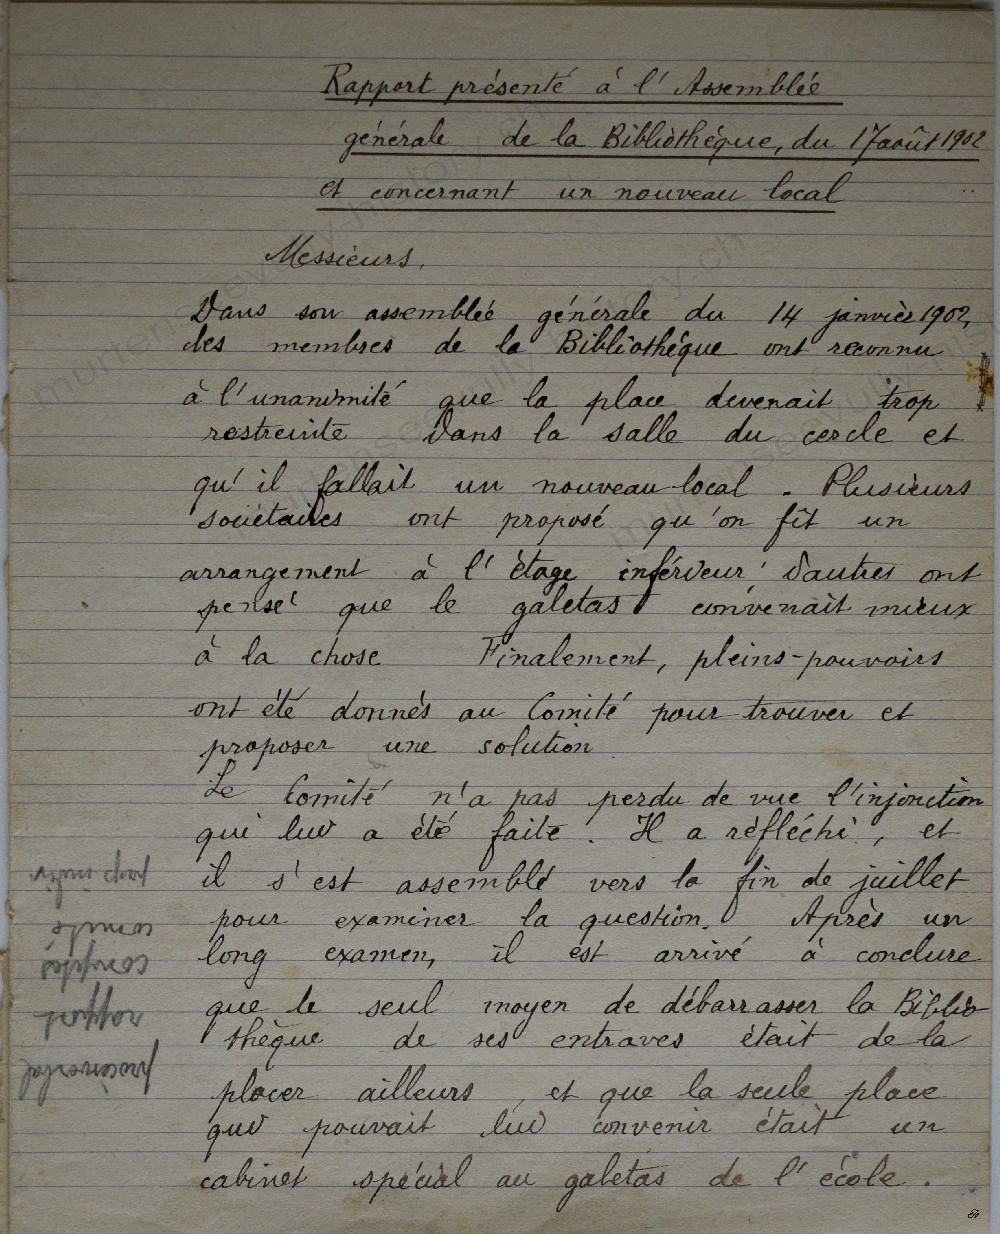 Rapport présenté à l'Assemblée
générale de la Bibliothèque, du 17 août 1902
et concernant un nouveau local
Messieurs,
Dans son assemblée générale du 14 janvier 1902,
les membres de la Bibliothèque ont reconnu
à l'unanimité que la place devenait trop
restreinte dans la salle du cercle et
qu'il fallait un nouveau local. Plusieurs
sociétaires ont proposé qu'on fît un
arrangement à l'étage inférieur; d'autres ont
pensé que le galetas convenait mieux
à la chose Finalement, pleins-pouvoirs
ont été donnés au Comité pour trouver et
proposer une solution
Le Comité n'a pas perdu de vue l'injonction
qui lui a été faite. Il a réfléchi, et
il s'est assemblé vers la fin de juillet
pour examiner la question. Après un
long examen, il est arrivé à conclure
que le seul moyen de débarrasser la Biblio
thèque de ses entraves était de la
placer ailleurs, et que la seule place
qui pouvait lui convenir était un
cabinet spécial au galetas de l'école.
procèverbal
rapport
comptes
comité